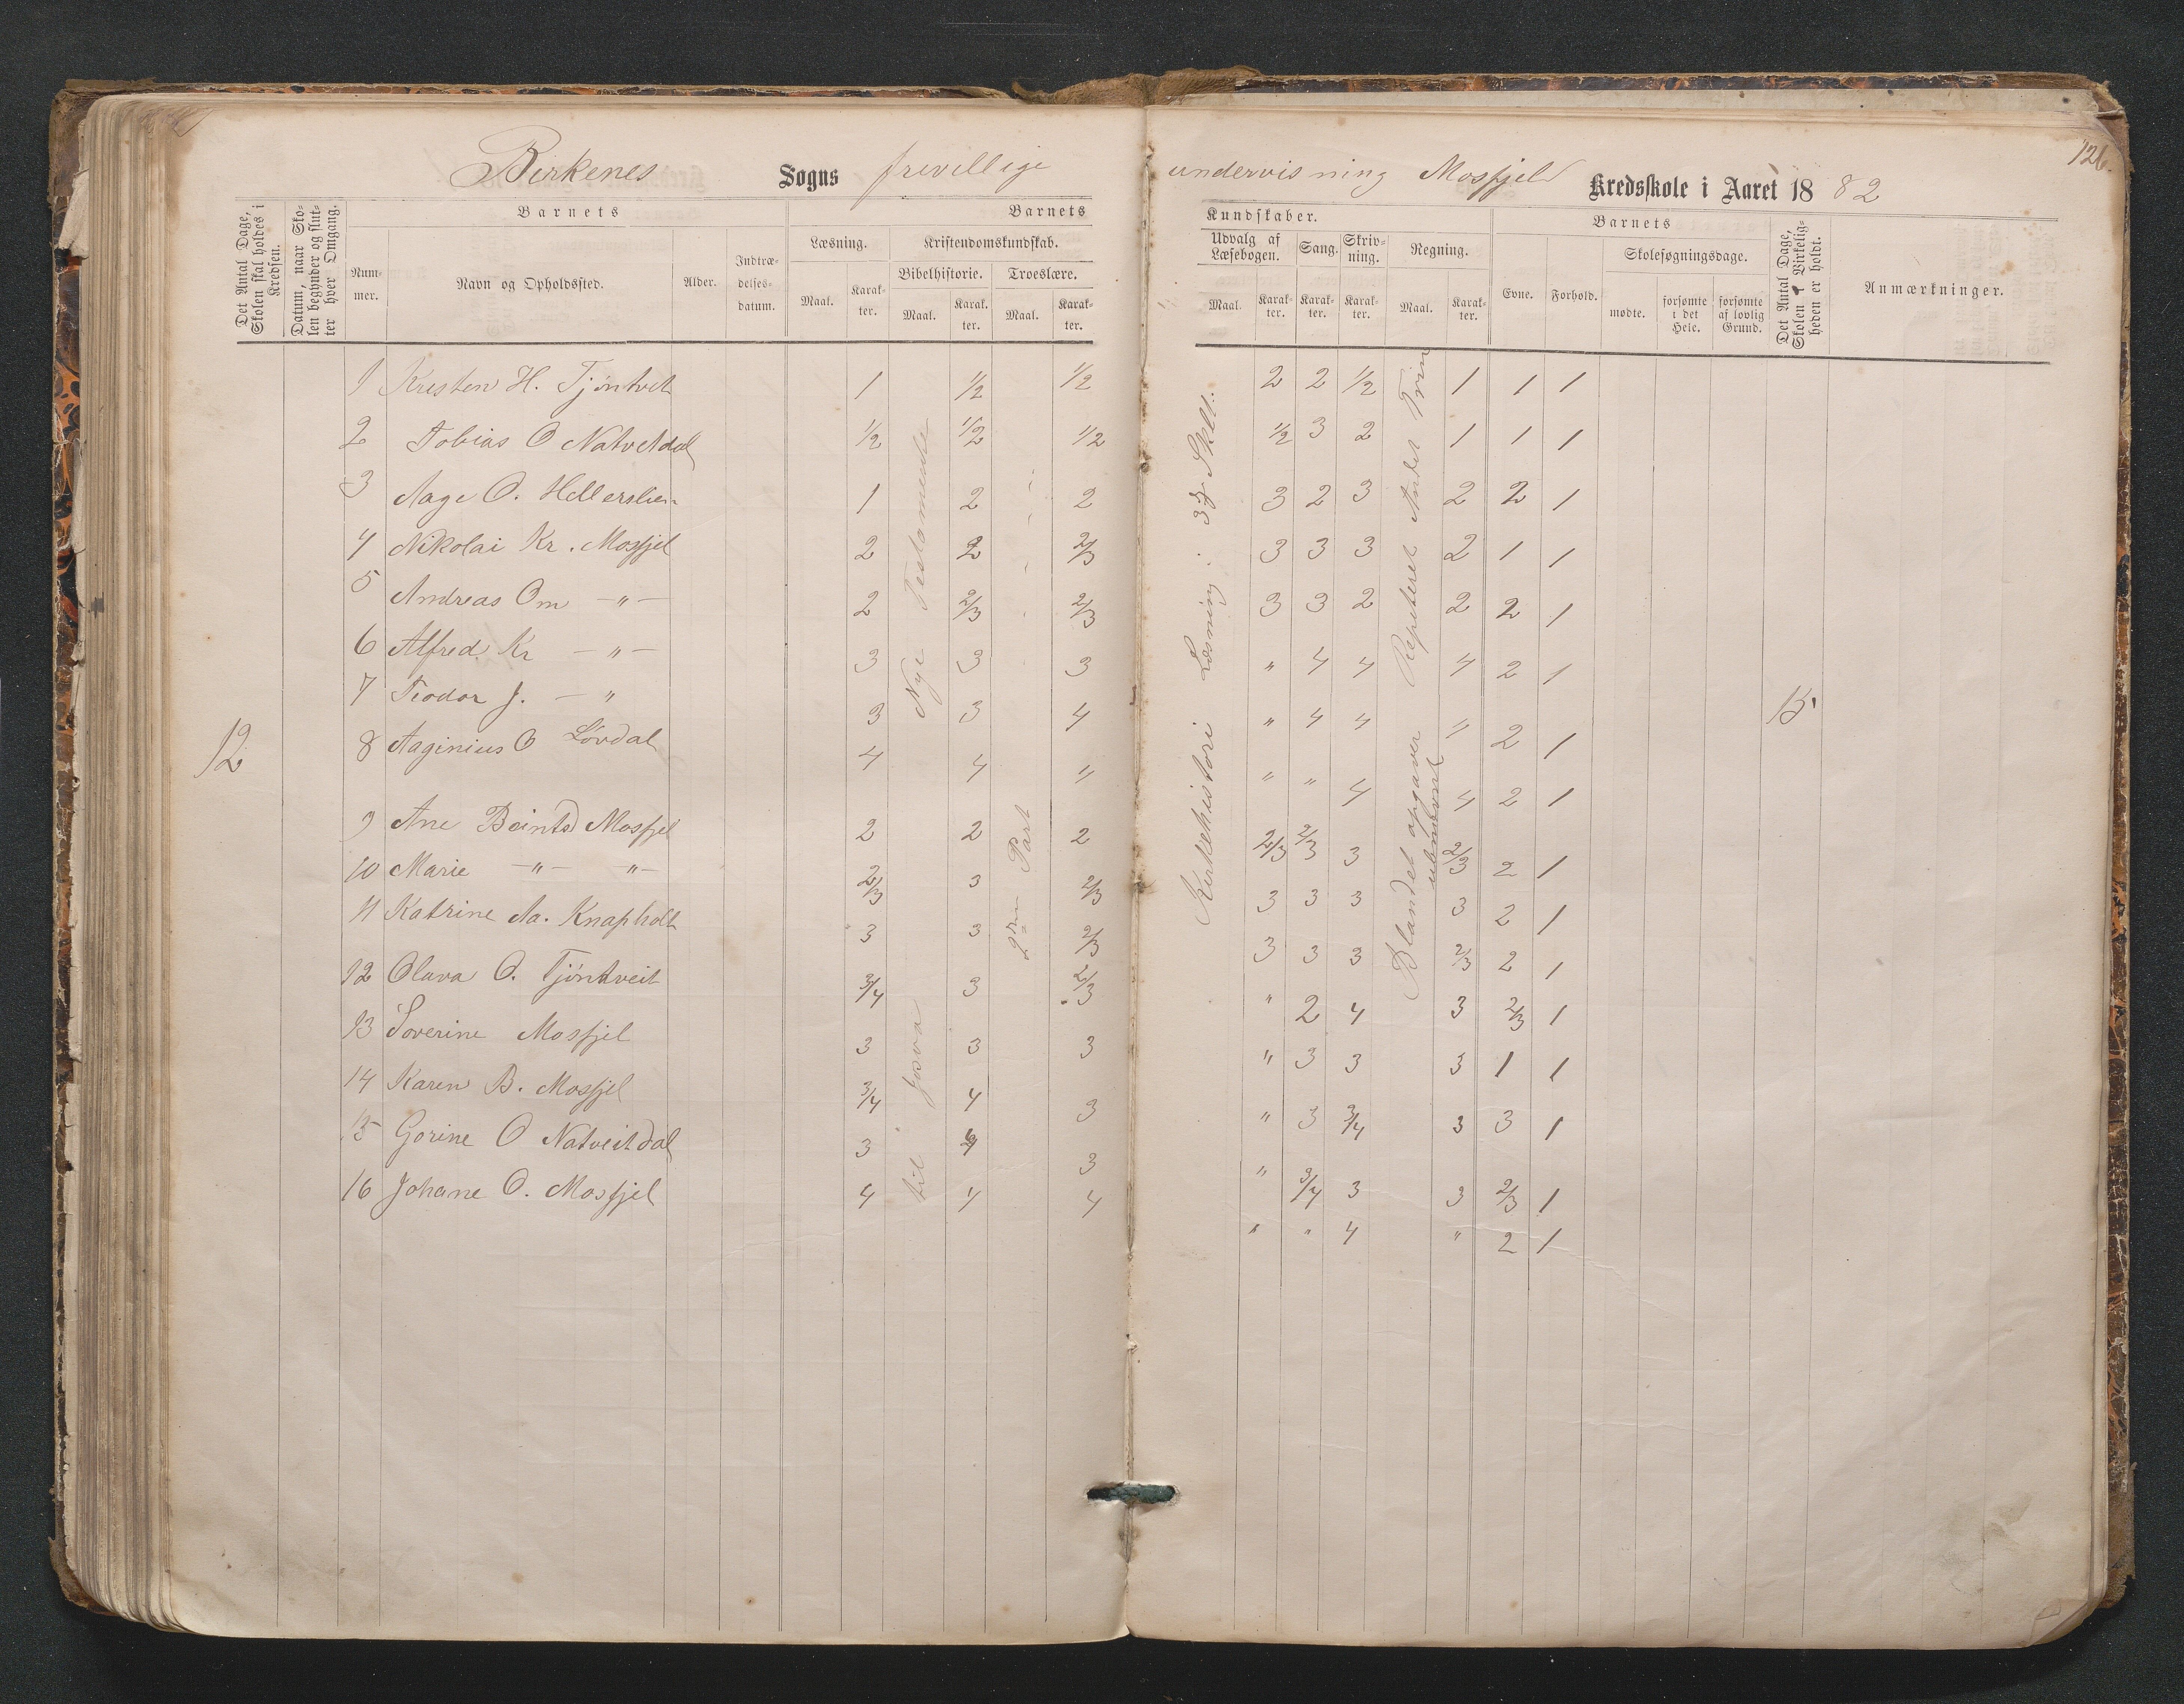 126.
Birkenes Sogns frevillige undervisning Mosfjeld Kredsskole i Aaret 1882
Det Antal Dage, Skolen skal holdes i Kredsen.
Datum, naar Skolen begynder og slutter hver Omgang.
Barnets
Nummer.
Navn og Opholdssted.
Alder.
Indtrædelsesdatum.
Barnets Kundskaber.
Læsning.
Maal.
Karakter.
Kristendomskundskab.
Bibelhistorie.
Maal.
Karakter.
Troeslære.
Maal.
Karakter.
Udvalg af Læsebogen.
Maal.
Karakter.
Sang.
Karakter.
Skrivning.
Karakter.
Regning.
Maal.
Karakter.
Barnets
Evne.
Forhold.
Skolesøgningsdage.
mødte.
forsømte i det Hele.
forsømte af lovlig Grund.
Det Antal Dage, Skolen i Virkeligheden er holdt.
Anmærkninger.
12
Nye Testamente
til Josva
2den Part
Kirkehistori Læsning i 3die Skll.
Repeteret Andet Trin
Blandet opgaver
15
1 Kristen H. Tjöntvet 1 1/2 1/2 2 2 1/2 1 1 1
2 Tobias O Natvetdal 1/2 1/2 1/2 1/2 3 2 1 1 1
3 Aage O. Hellerslien 1 2 2 3 2 3 2 2 1
4 Nikolai Kr. Mosfjel 2 2 2/3 3 3 3 2 1 1
5 Andreas Om — " — 2 2/3 2/3 3 3 2 2 2 1
6 Alfred Kr — " — 3 3 3 " 4 4 4 2 1
7 Teodor J. — " 3 3 4 " 4 4 " 2 1
8 Aaginius O Lövdal 4 4 " " " 4 4 2 1
9 Ane Beintsd Mosfjel 2 2 2 2/3 2/3 3 2/3 2 1
10 Marie — " — " — 2/3 3 2/3 3 3 3 3 2 1
11 Katrine Aa. Knapholt 3 3 2/3 3 3 3 2/3 2 1
12 Olava O. Tjöntveit 3/4 3 2/3 " 2 4 3 2/3 1
13 Soverine Mosfjel 3 3 3 " 3 3 3 1 1
14 Karen B. Mosfjel 3/4 4 3 " 3 3/4 3 3 1
15 Gorine O Natveitdal 3 4 3 " 3/4 3 3 2/3 1
16 Johane O. Mosfjel 4 4 4 " " 4 " 2 1